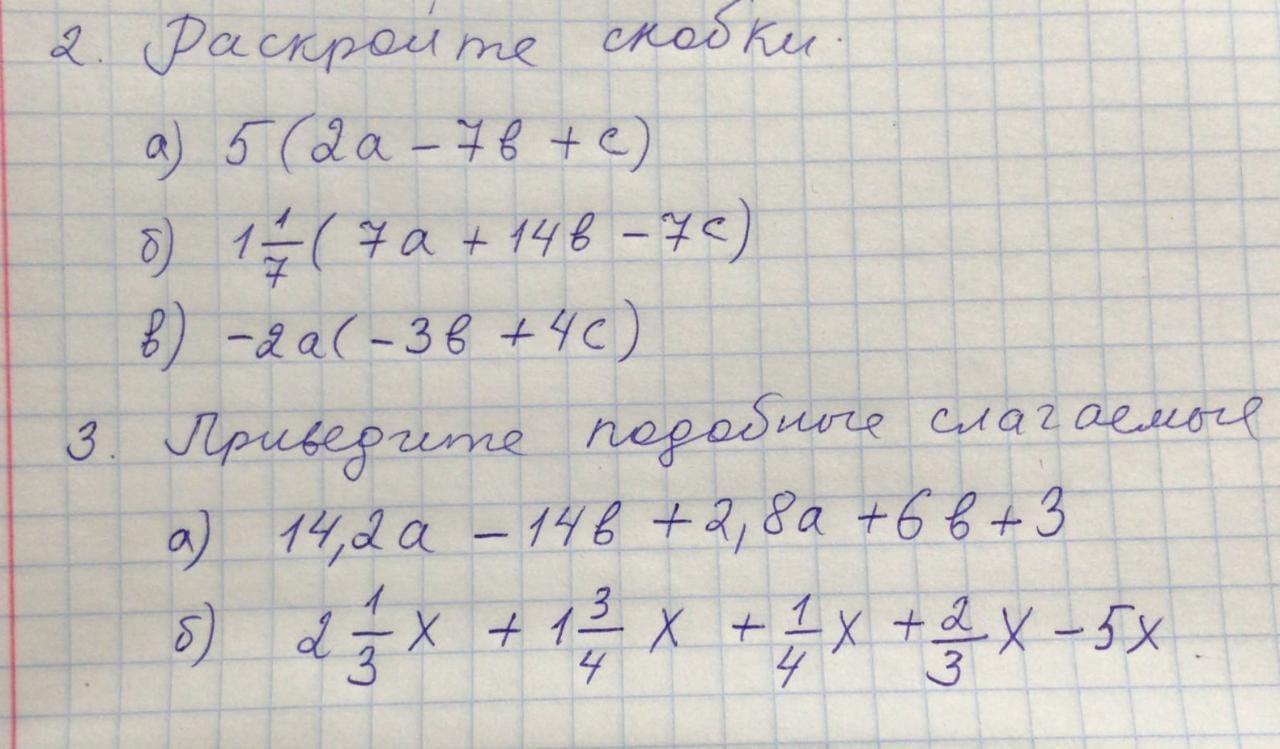 2. Раскройте скобки.
а) 5(2а - 7в + с)
б) 1 1/7 (7а + 14в - 7с)
в) -2а(-3в + 4с)
3. Приведите подобные слагаемые
а) 14,2а - 14в + 2,8а + 6в + 3
б) 2 1/3 х + 1 3/4 х + 1/4 х + 2/3 х - 5х